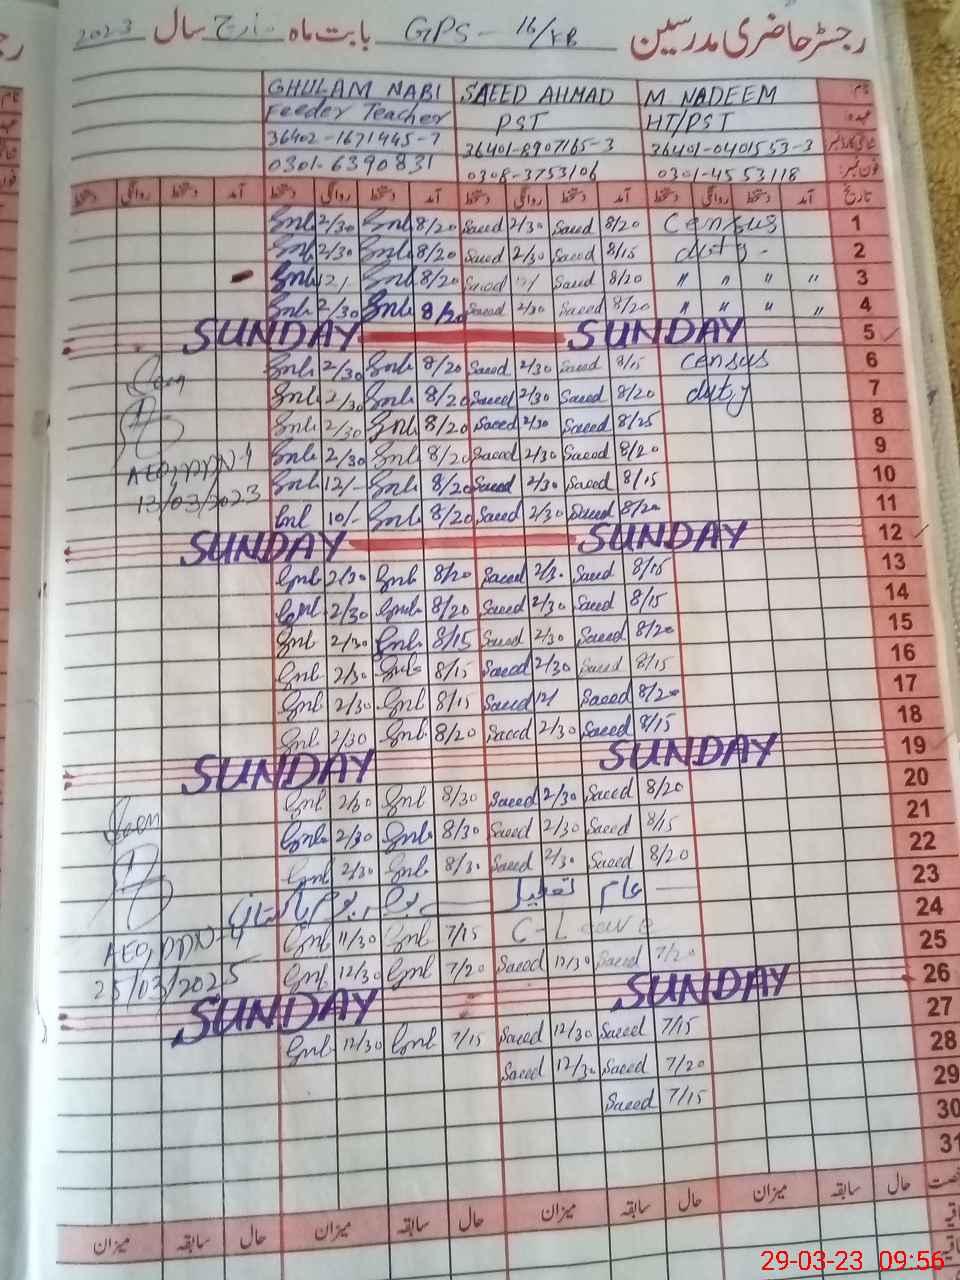 رجسٹر حاضری مدرسین GPS - 16/KB بابت ماہ مارچ سال 2023
نام M NADEEM SAEED AHMAD GHULAM NABI
عہدہ HT/PST PST Feeder Teacher
شناختی کارڈ نمبر 36401-0401553-3 36401-8907165-3 36402-1671445-7
فون نمبر: 0301-4553118 0308-3753106 0301-6390831
تاریخ آمد دستخط روانگی دستخط آمد دستخط روانگی دستخط آمد دستخط روانگی دستخط آمد دستخط روانگی دستخط
1 Census 8/20 Saeed 2/30 Saeed 8/20 Gnb 2/30 Gnb
2 duty - 8/15 Saeed 2/30 Saeed 8/20 Gnb 2/30 Gnb
3 " " " " 8/20 Saeed 12/ Saeed 8/20 Gnb 12/- Gnb
4 " " " " 8/20 Saeed 2/30 Saeed 8/20 Gnb 2/30 Gnb
5 SUNDAY SUNDAY
6 Census 8/15 Saeed 2/30 Saeed 8/20 Gnb 2/30 Gnb
7 duty 8/20 Saeed 2/30 Saeed 8/20 Gnb 2/30 Gnb
8 8/25 Saeed 2/30 Saeed 8/20 Gnb 2/30 Gnb
9 8/20 Saeed 2/30 Saeed 8/20 Gnb 2/30 Gnb
10 8/15 Saeed 2/30 Saeed 8/20 Gnb 12/- Gnb
11 8/20 Saeed 2/30 Saeed 8/20 Gnb 10/- Gnb
AEO, DDN-4
13/03/2023
12 SUNDAY SUNDAY
13 8/15 Saeed 2/3. Saeed 8/20 Gnb 2/30 Gnb
14 8/15 Saeed 2/30 Saeed 8/20 Gnb 2/30 Gnb
15 8/20 Saeed 2/30 Saeed 8/15 Gnb 2/30 Gnb
16 8/15 Saeed 2/30 Saeed 8/15 Gnb 2/30 Gnb
17 8/20 Saeed 12/ Saeed 8/15 Gnb 2/30 Gnb
18 8/15 Saeed 2/30 Saeed 8/20 Gnb 2/30 Gnb
19 SUNDAY SUNDAY
20 8/20 Saeed 2/30 Saeed 8/30 Gnb 2/30 Gnb
21 8/15 Saeed 2/30 Saeed 8/30 Gnb 2/30 Gnb
22 8/20 Saeed 2/30 Saeed 8/30 Gnb 2/30 Gnb
23 عام تعطیل بسلسلہ یوم پاکستان
24 C-Leave 7/15 Gnb 11/30 Gnb
25 7/20 Saeed 12/30 Saeed 7/20 Gnb 12/30 Gnb
AEO, DDN-4
25/03/2023
26 SUNDAY SUNDAY
27 7/15 Saeed 12/30 Saeed 7/15 Gnb 12/30 Gnb
28 7/20 Saeed 12/30 Saeed
29 7/15 Saeed
30
31
حال سابقہ میزان حال سابقہ میزان حال سابقہ میزان حال سابقہ میزان
29-03-23 09:56